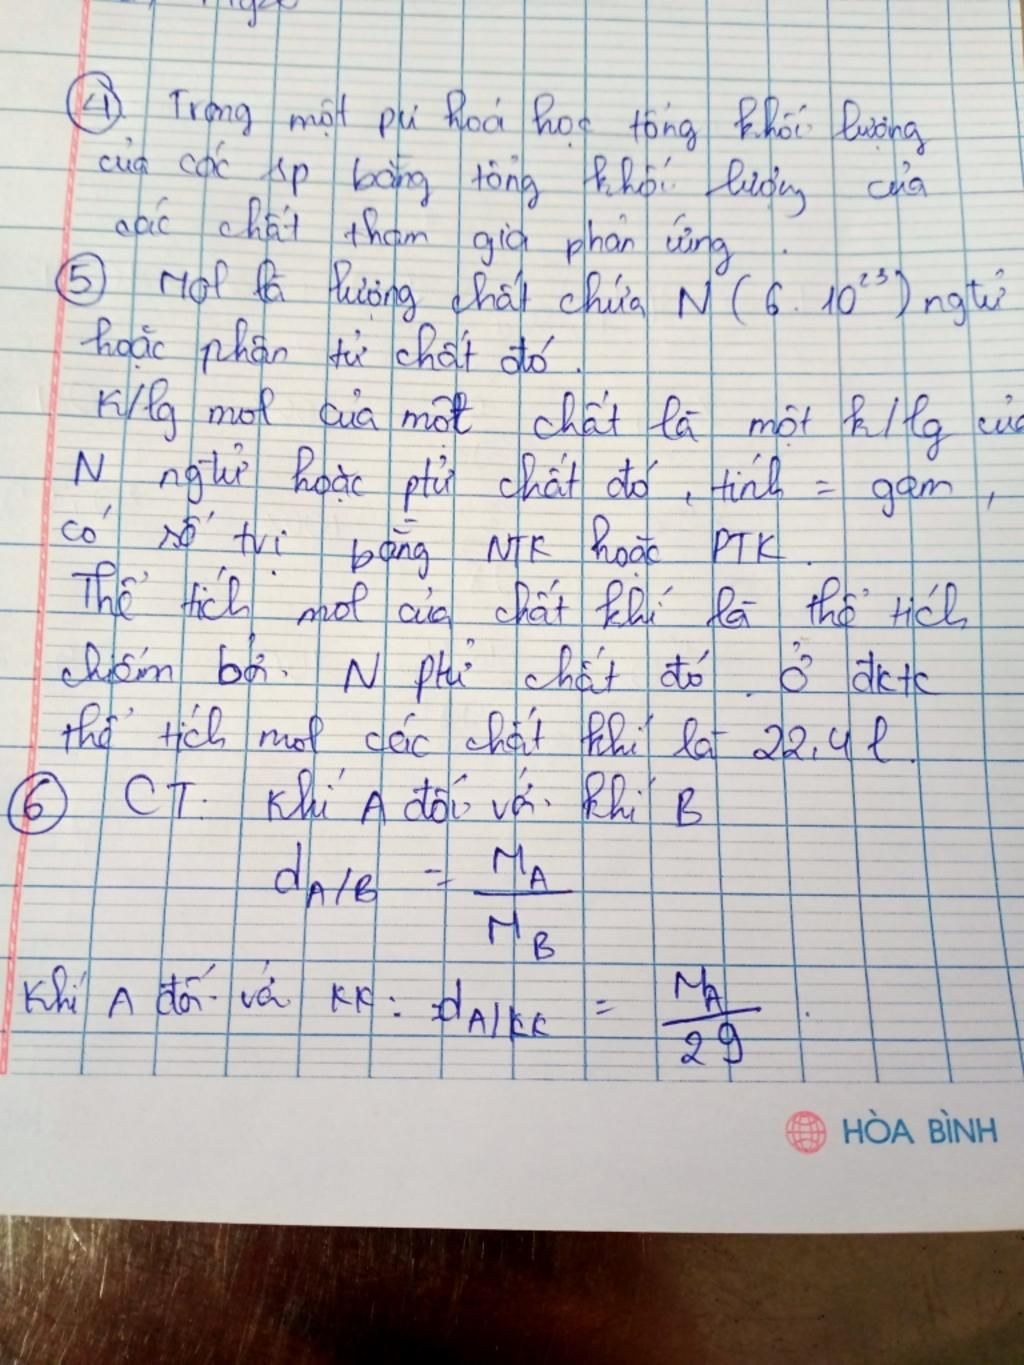 ④ Trong một pứ hoá học tổng khối lượng
của các sp bằng tổng khối lượng của
các chất tham gia phản ứng .
⑤ Mol là lượng chất chứa N ( 6 . 10²³ ) ngtử
hoặc phân tử chất đó .
K/lg mol của một chất là một k/lg của
N ngtử hoặc ptử chất đó , tính = gam ,
có số trị bằng NTK hoặc PTK
Thể tích mol của chất khí là thể tích
chiếm bởi N ptử chất đó . Ở đktc
thể tích mol các chất khí là 22,4 l .
⑥ CT : Khí A đối với khí B
d A/B = M A / M B
Khí A đối với KK : d A/KK = M A / 29 .
HÒA BÌNH